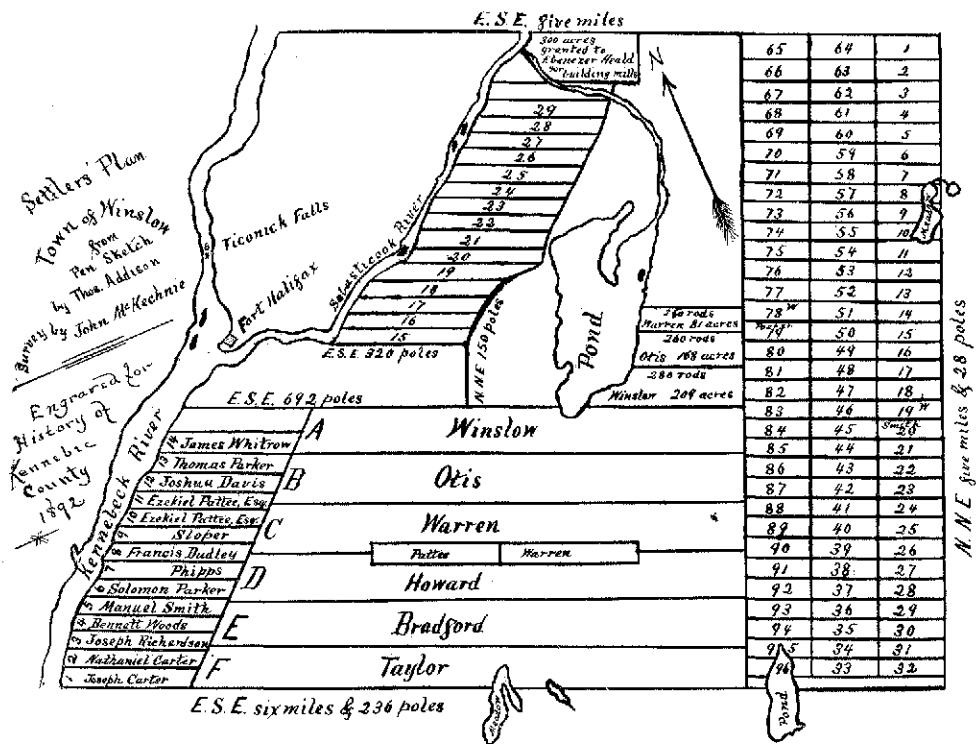 E.S.E. five miles
300 acres
granted to
Ebenezer Heald
for
building mills
N
Settlers' Plan
Town of Winslow
from
Pen Sketch
by Thos. Addison
Survey by John McKechnie
Engraved for
History of
Kennebec
County
1892
Ticonick Falls
Fort Halifax
Sebasticook River
Kennebeck River
29
28
27
26
25
24
23
22
21
20
19
18
17
16
15
E.S.E. 320 poles
N NE 150 poles
Pond
260 rods
Warren 81 acres
260 rods
Otis 168 acres
280 rods
Winslow 209 acres
E.S.E. 692 poles
14 James Whitrow
13 Thomas Parker
12 Joshua Davis
11 Ezekiel Pattee, Esq.
10 Ezekiel Pattee, Esq.
9 Sloper
8 Francis Dudley
7 Phipps
6 Solomon Parker
5 Manuel Smith
4 Bennett Woods
3 Joseph Richardson
2 Nathaniel Carter
1 Joseph Carter
A Winslow
B Otis
C Warren
Pattee Warren
D Howard
E Bradford
F Taylor
E.S.E. six miles & 236 poles
Meadow
65 64 1
66 63 2
67 62 3
68 61 4
69 60 5
70 59 6
71 58 7
72 57 8
73 56 9
74 55 10
75 54 11
76 53 12
77 52 13
78 W 51 14
79 50 15
80 49 16
81 48 17
82 47 18
83 46 19 W
84 45 Smith 20
85 44 21
86 43 22
87 42 23
88 41 24
89 40 25
90 39 26
91 38 27
92 37 28
93 36 29
94 35 30
95 34 31
96 33 32
Meadow
Pond
N NE five miles & 28 poles